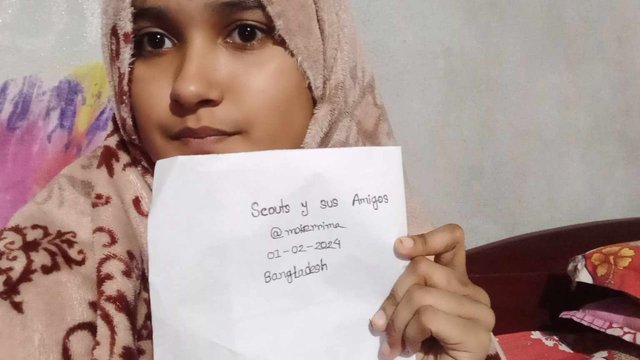 Scouts y sus Amigos
@mohzmima
01-02-2024
Bangladesh